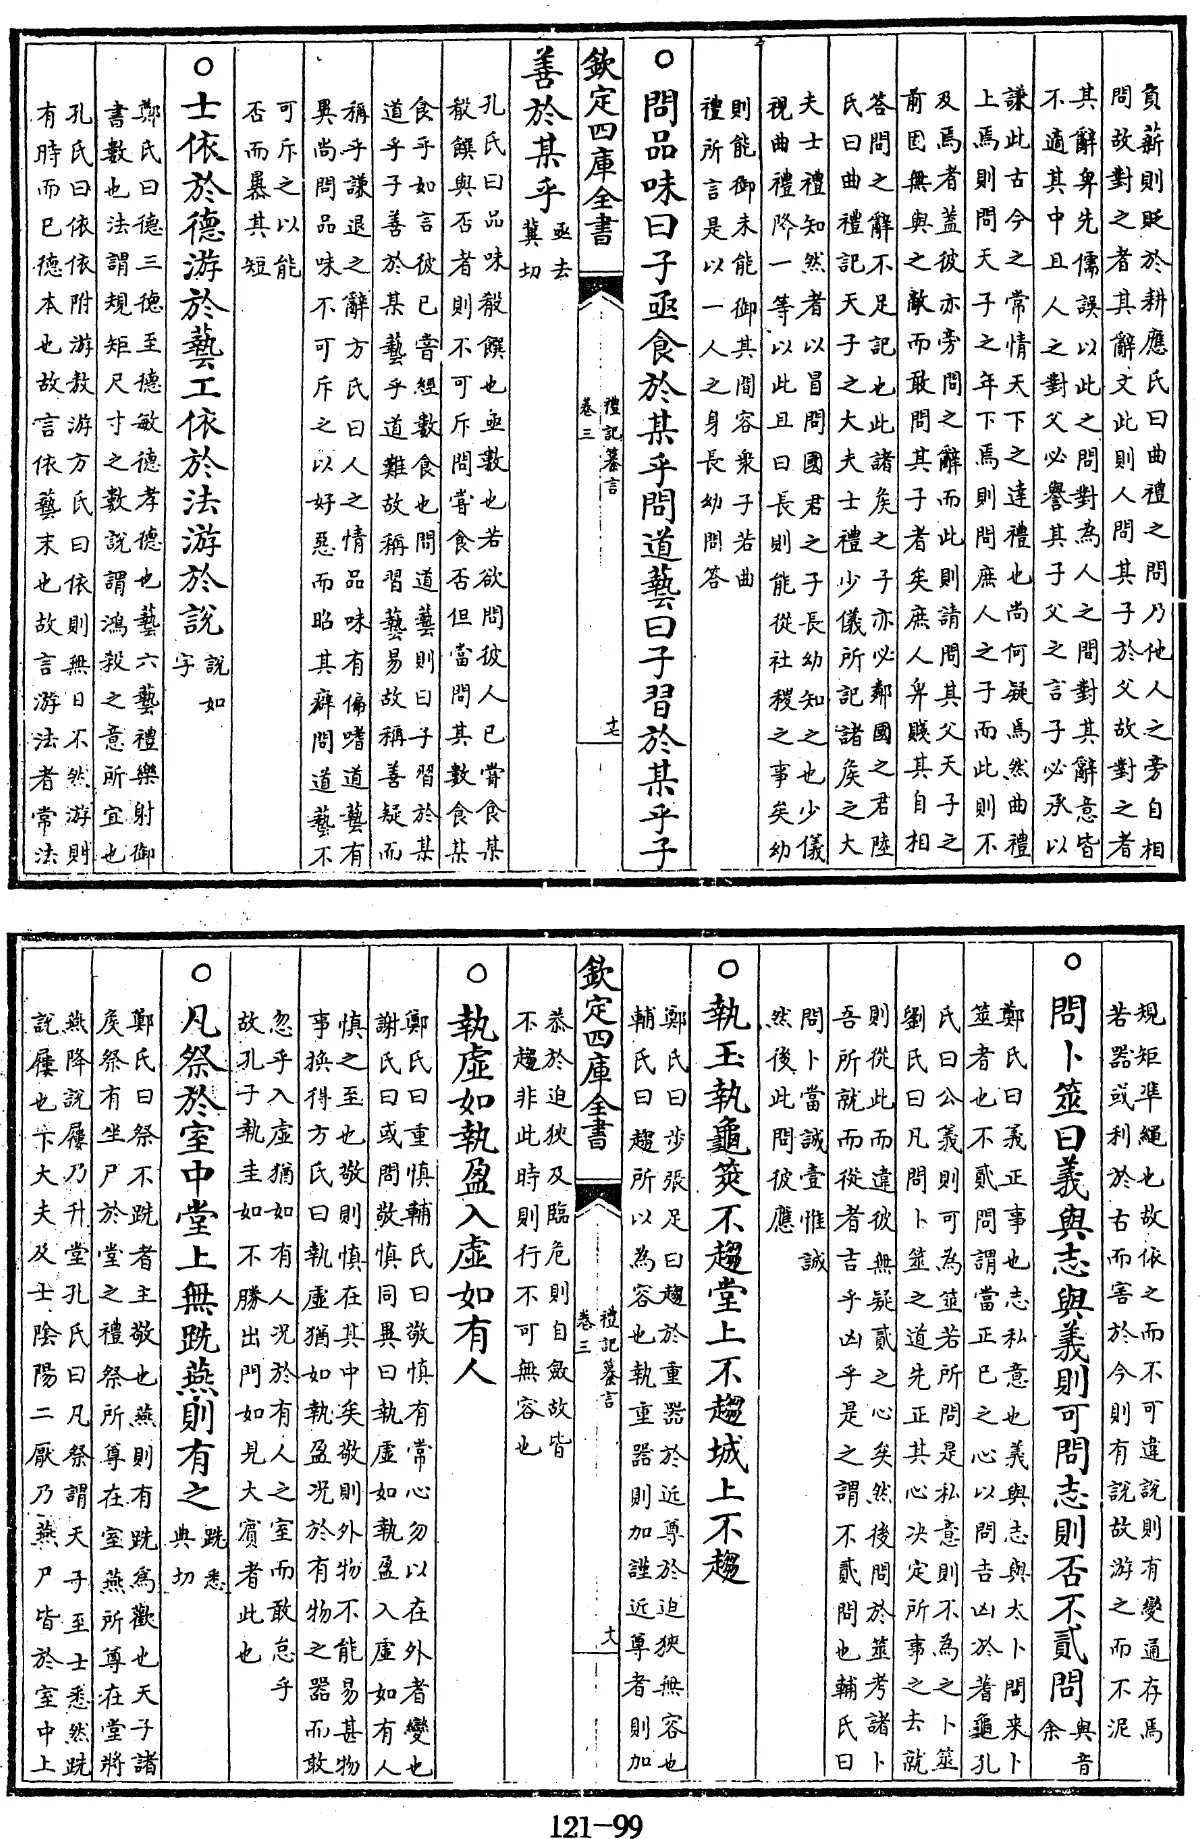 負薪則貶於耕應氏曰曲禮之問乃他人之旁自相
問故對之者其辭文此則人問其子於父故對之者
其辭卑先儒誤以此之問對為人之間對其辭意皆
不適其中且人之對父必譽其子父之言子必承以
謙此古今之常情天下之達禮也尚何疑焉然曲禮
上焉則問天子之年下焉則問庶人之子而此則不
及焉者蓋彼亦旁問之辭而此則請問其父天子之
前固無與之敵而敢問其子者矣庶人卑賤其自相
答問之辭不足記也此諸矦之子亦必鄰國之君陸
氏曰曲禮記天子之大夫士禮少儀所記諸矦之大
夫士禮知然者以冒問國君之子長幼知之也少儀
視曲禮降一等以此且曰長則能從社稷之事矣幼
則能御未能御其間容衆子若曲
禮所言是以一人之身長幼問答
○問品味曰子亟食於某乎問道藝曰子習於某乎子
欽定四庫全書
禮記纂言
卷三
十七
善於某乎
亟去
冀切
孔氏曰品味殽饌也亟數也若欲問彼人已嘗食某
殽饌與否者則不可斥問嘗食否但當問其數食某
食乎如言彼已嘗經數食也問道藝則曰子習於某
道乎子善於某藝乎道難故稱習藝易故稱善疑而
稱乎謙退之辭方氏曰人之情品味有偏嗜道藝有
異尚問品味不可斥之以好惡而昭其癖問道藝不
可斥之以能
否而暴其短
○士依於德游於藝工依於法游於說
說如
字
鄭氏曰德三德至德敏德孝德也藝六藝禮樂射御
書數也法謂規矩尺寸之數說謂鴻殺之意所宜也
孔氏曰依依附游敖游方氏曰依則無日不然游則
有時而已德本也故言依藝末也故言游法者常法
規矩準繩也故依之而不可違說則有變通存焉
若器或利於古而害於今則有說故游之而不泥
○問卜筮曰義與志與義則可問志則否不貳問
與音
余
鄭氏曰義正事也志私意也義與志與太卜問來卜
筮者也不貳問謂當正已之心以問吉凶於蓍龜孔
氏曰公義則可為筮若所問是私意則不為之卜筮
劉氏曰凡問卜筮之道先正其心决定所事之去就
則從此而違彼無疑貳之心矣然後問於筮考諸卜
吾所就而從者吉乎凶乎是之謂不貳問也輔氏曰
問卜當誠壹惟誠
然後此問彼應
○執玉執龜筴不趨堂上不趨城上不趨
鄭氏曰步張足曰趨於重器於近尊於迫狹無容也
輔氏曰趨所以為容也執重器則加謹近尊者則加
欽定四庫全書
禮記纂言
卷三
十八
恭於迫狹及臨危則自斂故皆
不趨非此時則行不可無容也
○執虛如執盈入虛如有人
鄭氏曰重慎輔氏曰敬慎有常心勿以在外者變也
謝氏曰或問敬慎同異曰執虛如執盈入虛如有人
慎之至也敬則慎在其中矣敬則外物不能易甚物
事換得方氏曰執虛猶如執盈况於有物之器而敢
忽乎入虛猶如有人况於有人之室而敢怠乎
故孔子執圭如不勝出門如見大賓者此也
○凡祭於室中堂上無跣燕則有之
跣悉
典切
鄭氏曰祭不跣者主敬也燕則有跣為歡也天子諸
矦祭有坐尸於堂之禮祭所尊在室燕所尊在堂將
燕降說屨乃升堂孔氏曰凡祭謂天子至士悉然跣
說屨也下大夫及士陰陽二厭乃燕尸皆於室中上
121-99